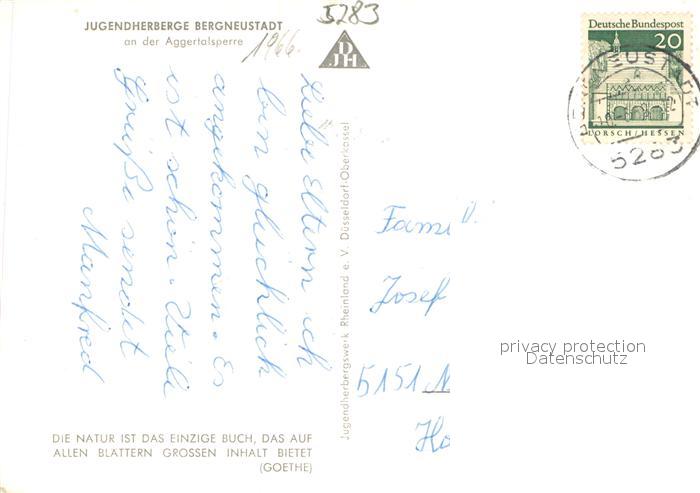 5283
JUGENDHERBERGE BERGNEUSTADT
an der Aggertalsperre
1966.
DJH
Liebe Eltern ich
bin glücklich
angekommen. Es
ist schön. Viele
Grüße sendet
Manfred
Jugendherbergswerk Rheinland e. V. Düsseldorf-Oberkassel
Deutsche Bundespost
20
LORSCH/HESSEN
5283
Josef
5151
privacy protection
Datenschutz
DIE NATUR IST DAS EINZIGE BUCH, DAS AUF
ALLEN BLATTERN GROSSEN INHALT BIETET
(GOETHE)